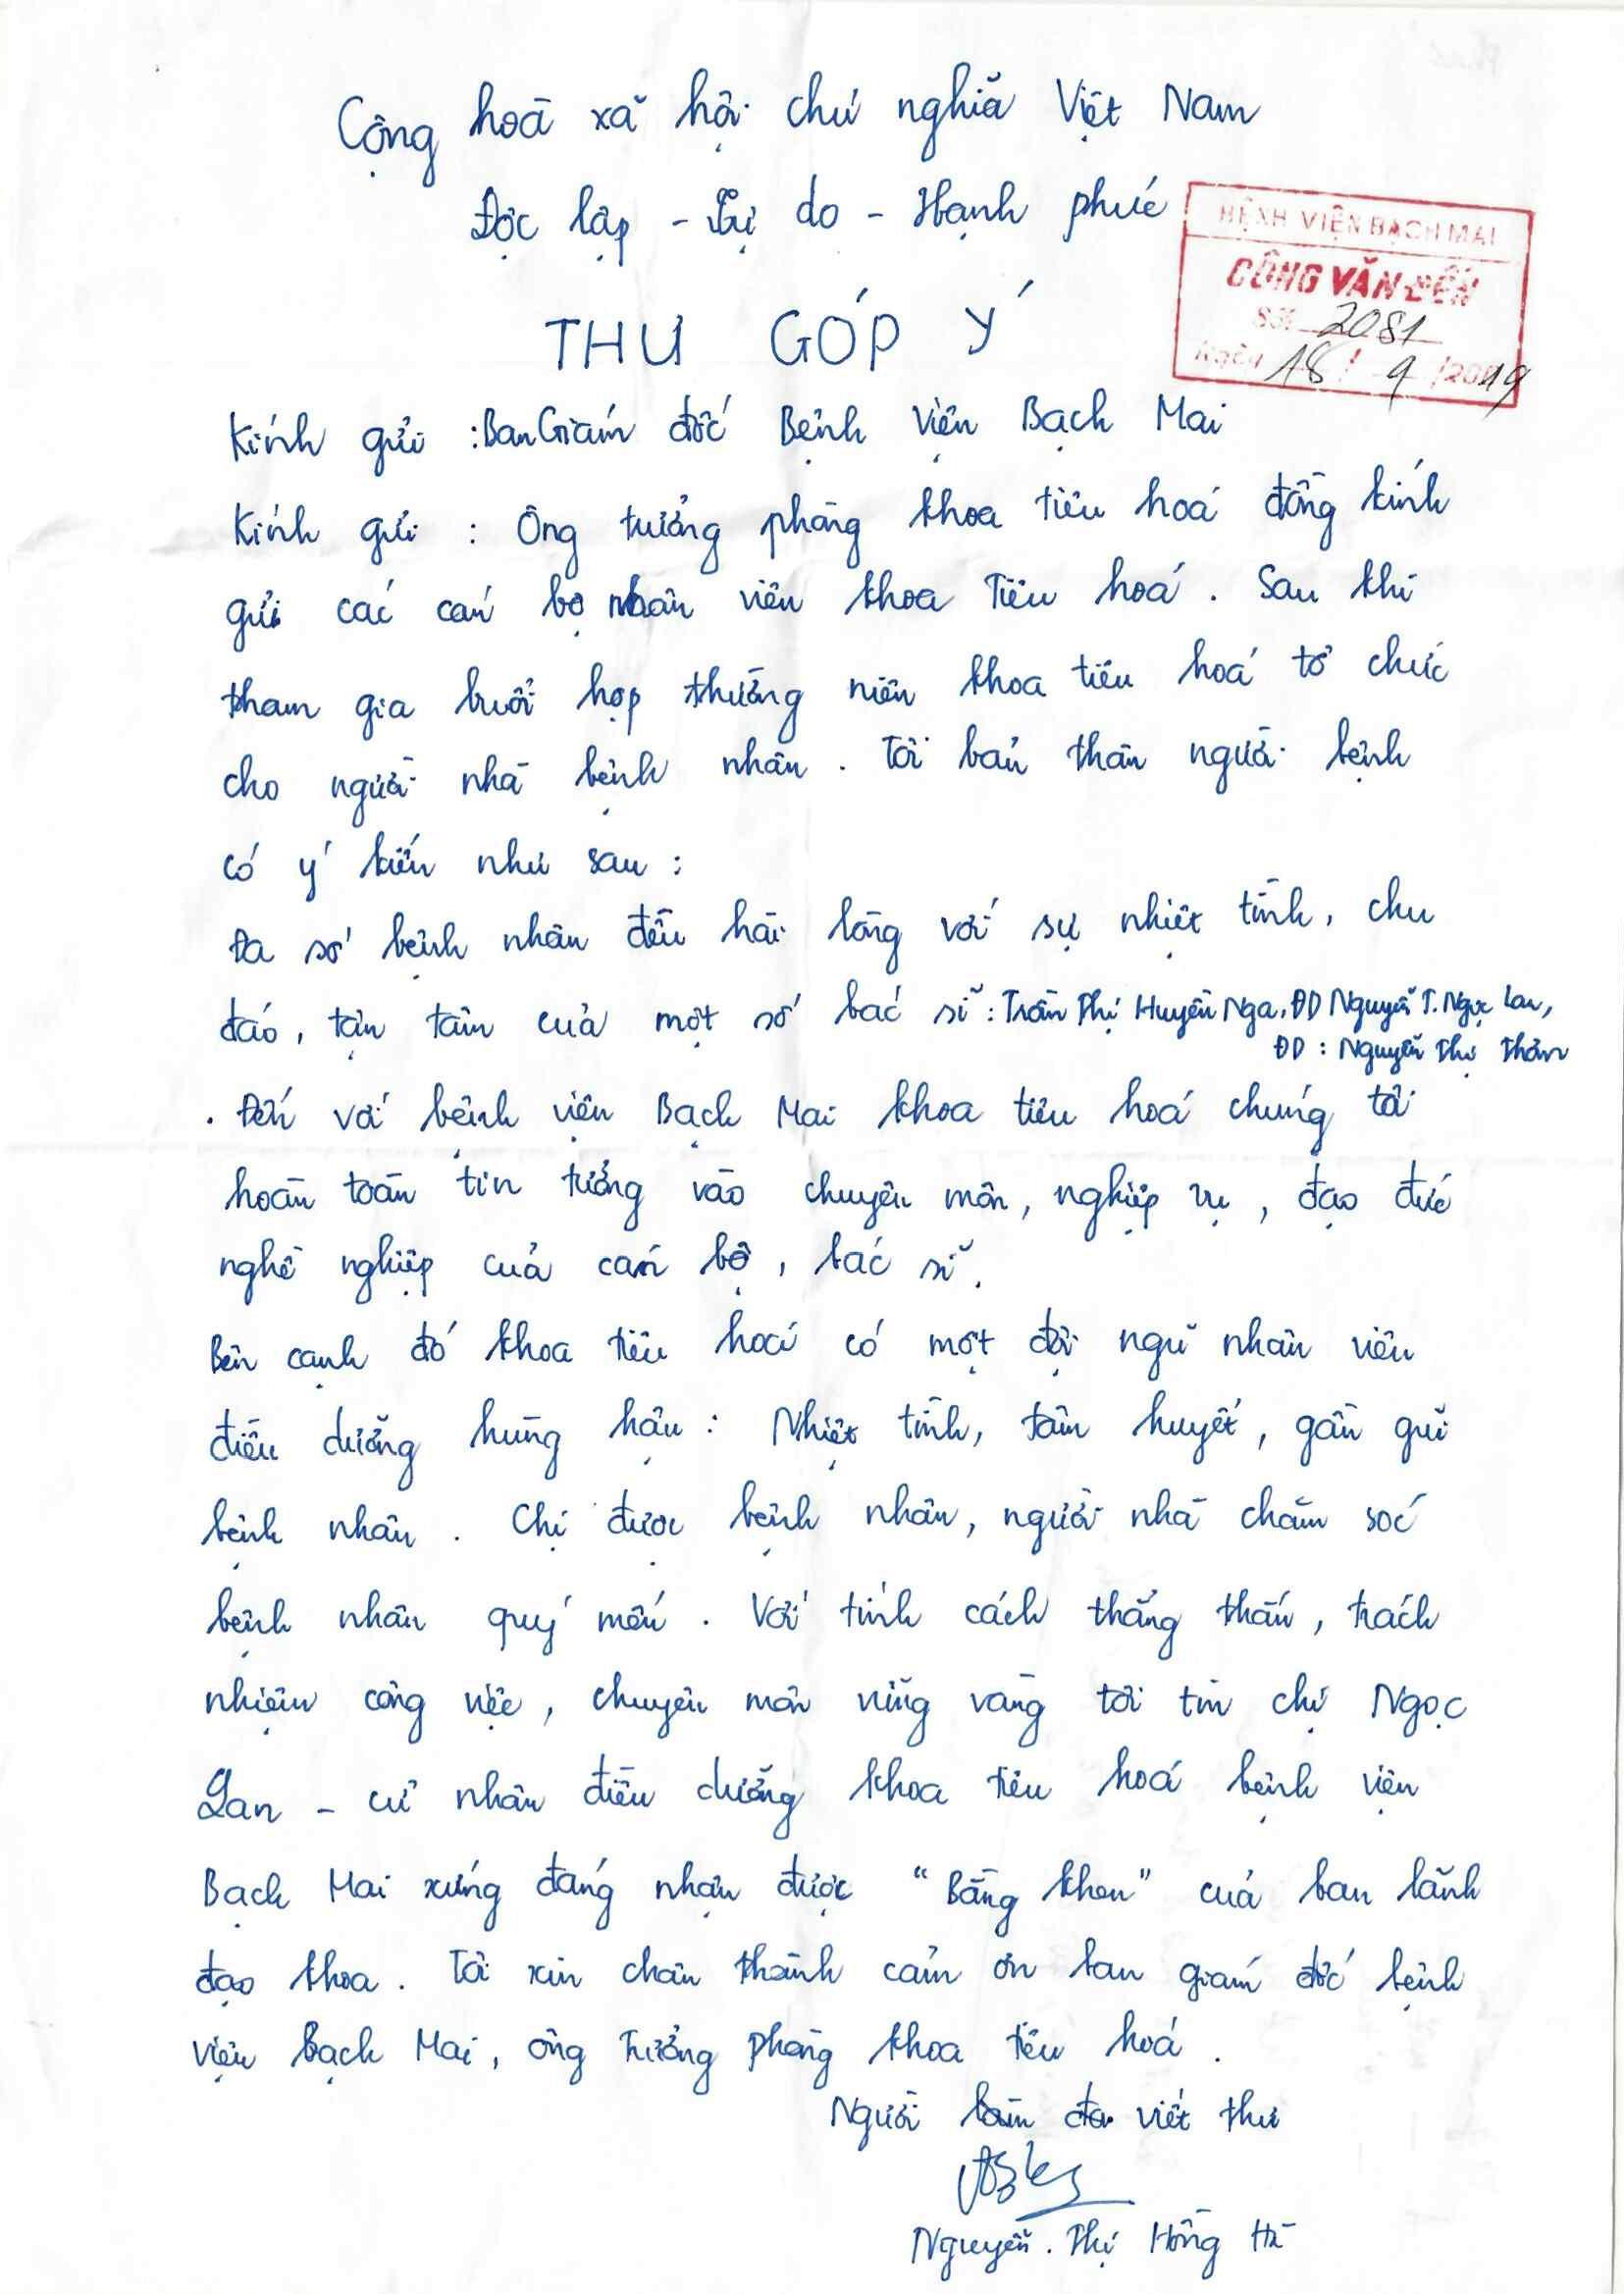 Cộng hoà xã hội chủ nghĩa Việt Nam
Độc lập - Tự do - Hạnh phúc
BỆNH VIỆN BẠCH MAI
CÔNG VĂN ĐẾN
Số: 2081
Ngày 18 / 9 /2019
THƯ GÓP Ý
Kính gửi : Ban Giám đốc Bệnh viện Bạch Mai
Kính gửi : Ông trưởng phòng khoa tiêu hoá đồng kính
gửi các cán bộ nhân viên khoa Tiêu hoá . Sau khi
tham gia buổi họp thường niên khoa tiêu hoá tổ chức
cho người nhà bệnh nhân . Tôi bản thân người bệnh
có ý kiến như sau :
Đa số bệnh nhân đều hài lòng với sự nhiệt tình, chu
đáo, tận tâm của một số bác sĩ : Trần Thị Huyền Nga, ĐD Nguyễn T. Ngọc Lan,
ĐD : Nguyễn Thị Thơm
. Đến với bệnh viện Bạch Mai khoa tiêu hoá chúng tôi
hoàn toàn tin tưởng vào chuyên môn, nghiệp vụ, đạo đức
nghề nghiệp của cán bộ, bác sĩ.
Bên cạnh đó khoa tiêu hoá có một đội ngũ nhân viên
điều dưỡng hùng hậu : Nhiệt tình, tâm huyết, gần gũi
bệnh nhân . Chị được bệnh nhân, người nhà chăm sóc
bệnh nhân quý mến . Với tính cách thẳng thắn, trách
nhiệm công việc, chuyên môn vững vàng tôi tin chị Ngọc
Lan - cử nhân điều dưỡng khoa tiêu hoá bệnh viện
Bạch Mai xứng đáng nhận được "Bằng khen" của ban lãnh
đạo khoa. Tôi xin chân thành cảm ơn ban giám đốc bệnh
viện Bạch Mai, ông Trưởng phòng khoa tiêu hoá .
Người làm đơn viết thư
Nguyễn . Thị Hồng Hà